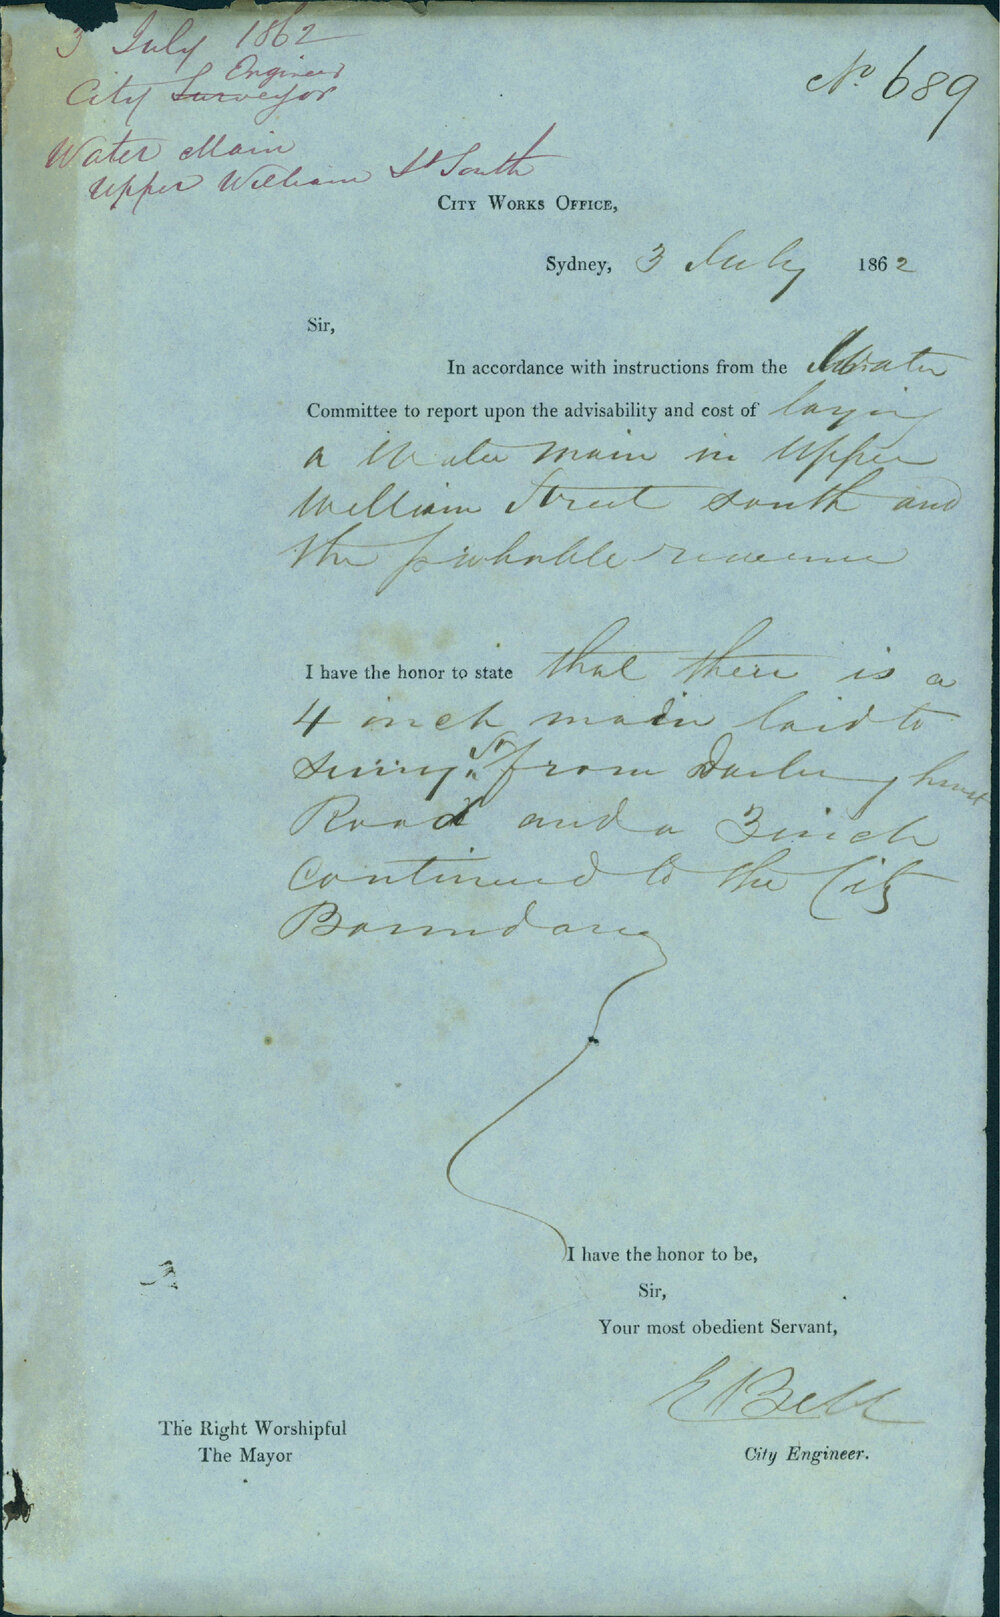 3 July 1862
City Surveyor Engineer
Water Main
Upper William St South
No 689
City Works Office,
Sydney, 3 July 1862
Sir,
In accordance with instructions from the Water
Committee to report upon the advisability and cost of laying
a Water main in Upper
William Street south and
the probable revenue
I have the honor to state that there is a
4 inch main laid to
St from Darlinghurst
Road and a 3 inch
continued to the City
Boundary
I have the honor to be,
Sir,
Your most obedient Servant,
E Bell
The Right Worshipful
The Mayor
City Engineer.